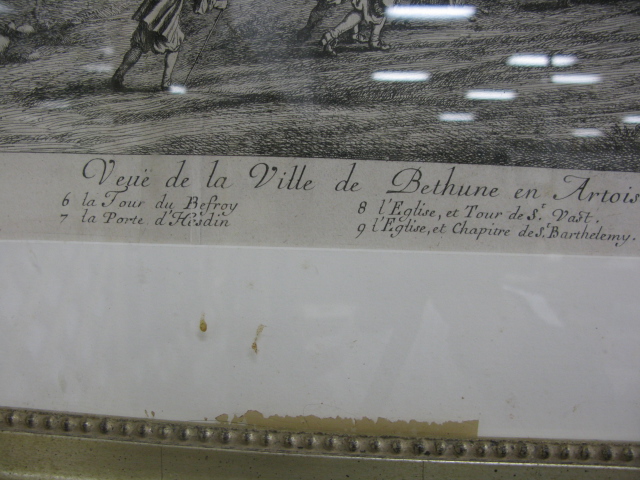 Veüe de la Ville de Bethune en Artois
6 la Tour du Befroy
7 la Porte d'Hisdin
8 l'Eglise, et Tour de S.t Vast.
9 l'Eglise, et Chapitre de S.t Barthelemy.